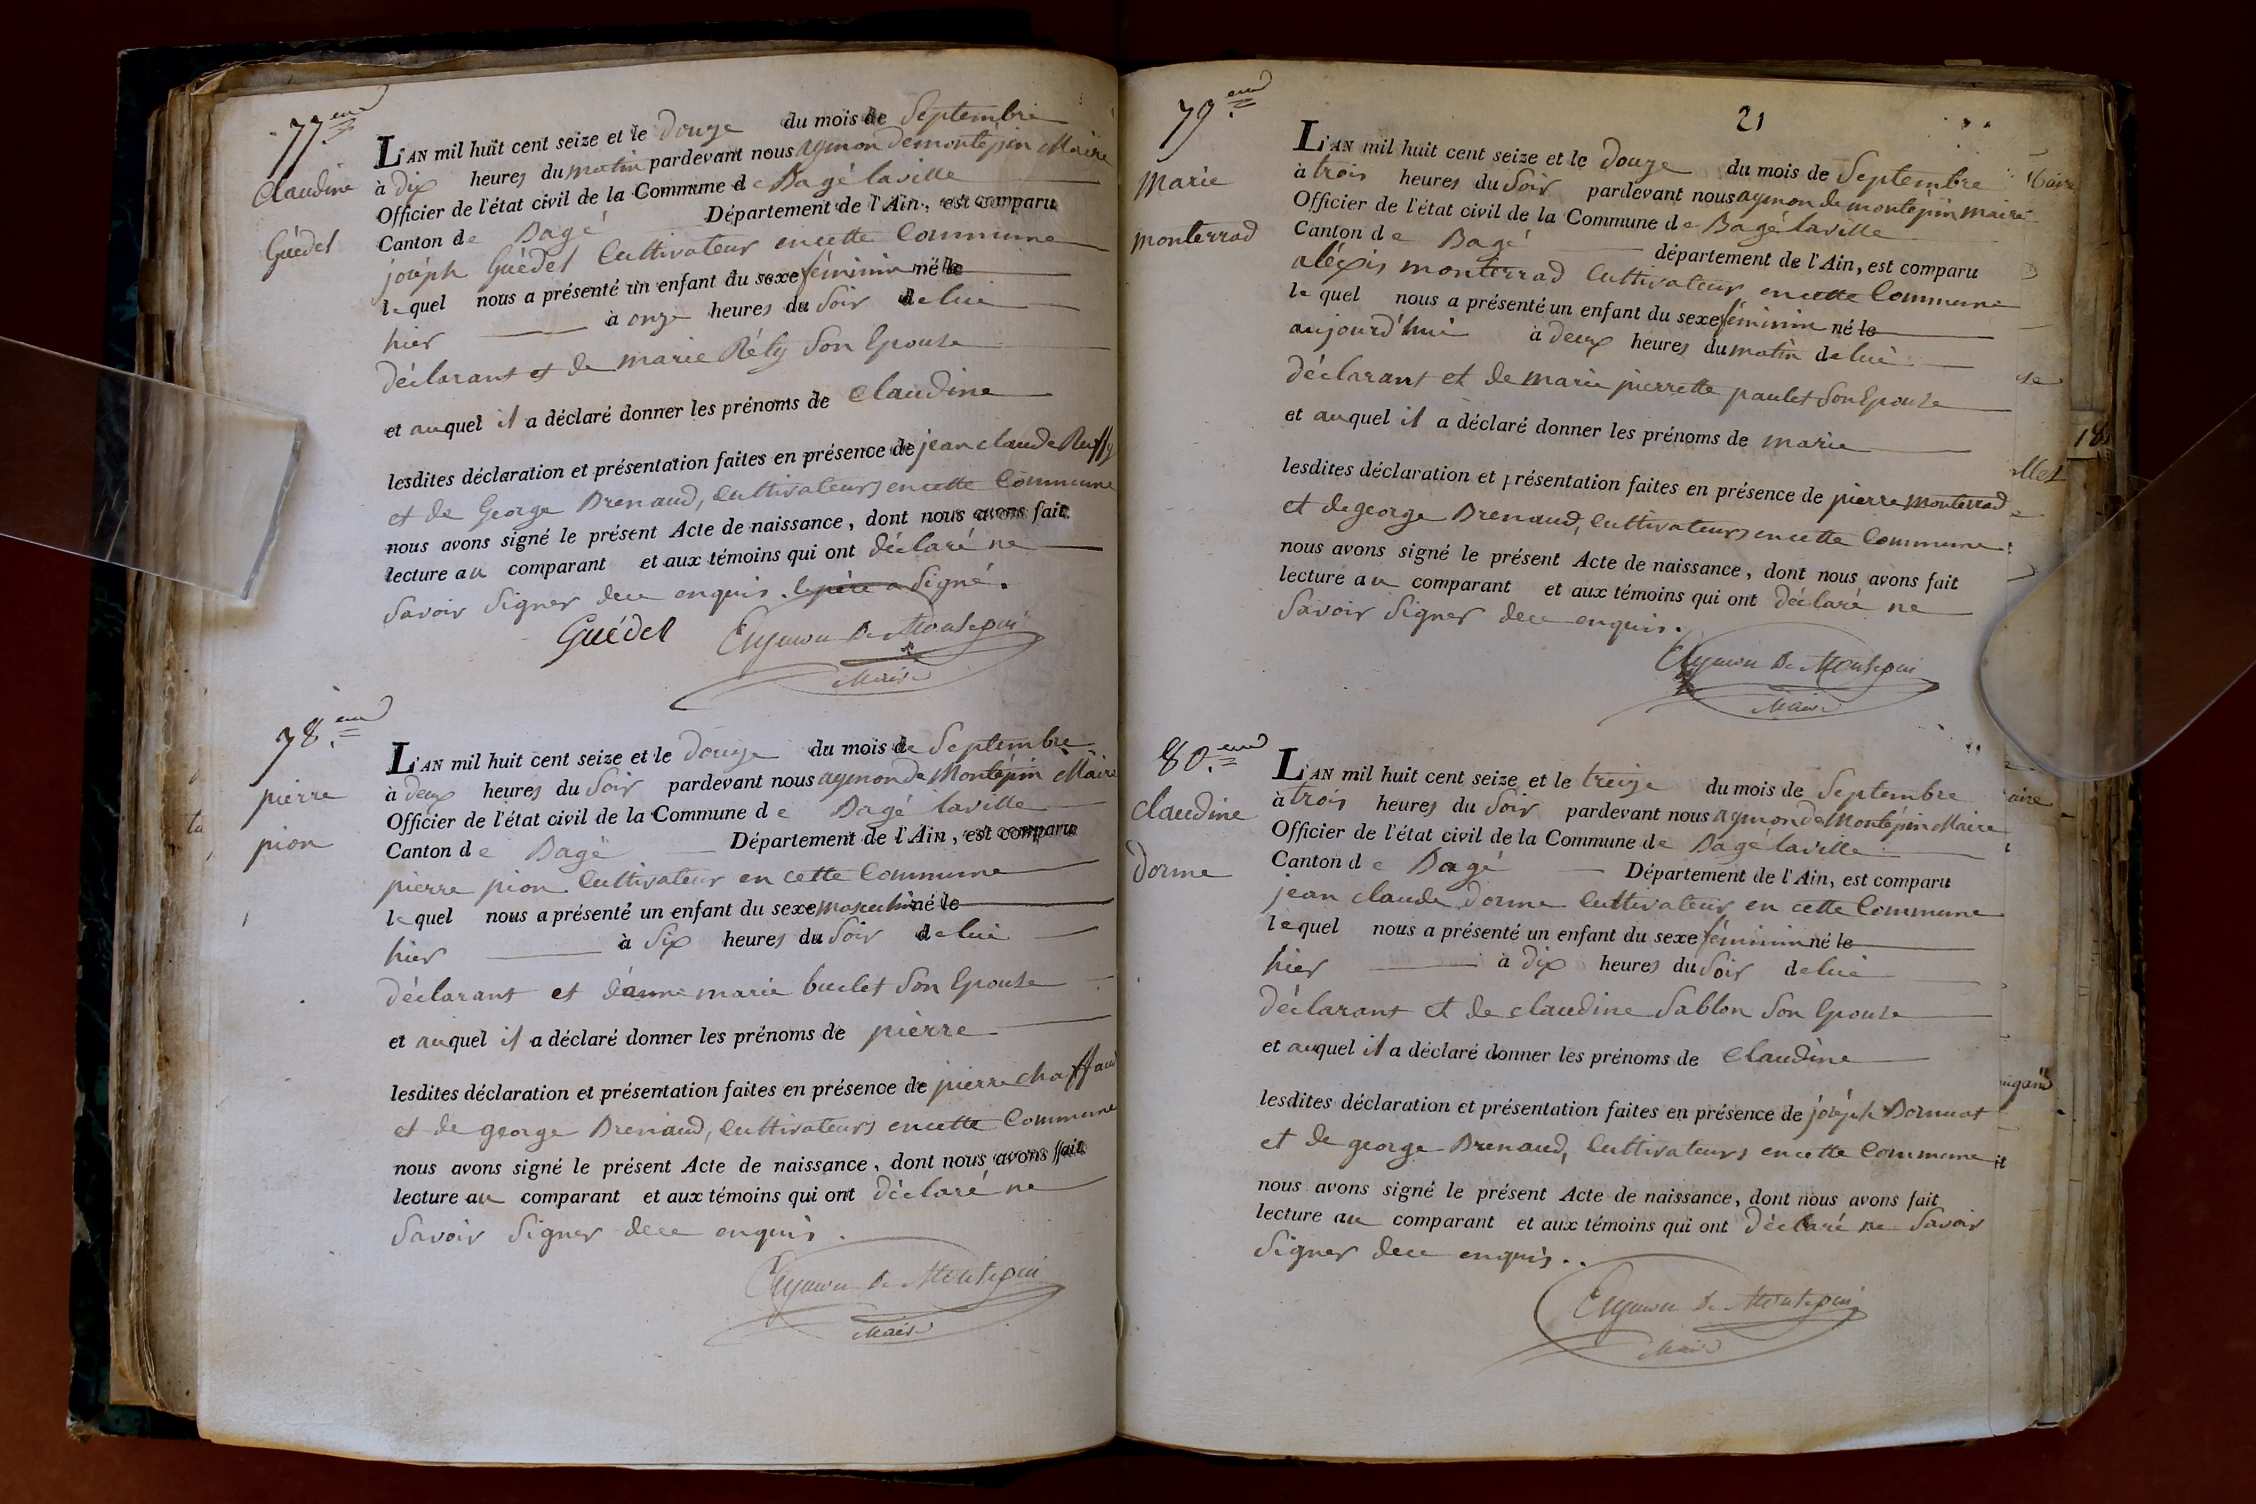 77.eme
Claudine
Guédel
L'AN mil huit cent seize et le douze du mois de Septembre
à dix heures du matin pardevant nous aymon demontépin Maire
Officier de l'état civil de la Commune de Bagé laville
Canton de Bagé Département de l'Ain, est comparu
joséph Guédel Cultivateur en cette Commune
lequel nous a présenté un enfant du sexe féminin né le
hier à onze heures du Soir de lui
déclarant et de marie Réty Son Epouse
et auquel il a déclaré donner les prénoms de Claudine
lesdites déclaration et présentation faites en présence de jean claude Ruffy
et de George Brenaud, Cultivateurs en cette Commune
nous avons signé le présent Acte de naissance, dont nous avons fait
lecture au comparant et aux témoins qui ont déclaré ne
Savoir Signer dece enquis. le père a Signé.
Guédel Aymon De Montepin
Maire
78.eme
pierre
pion
L'AN mil huit cent seize et le douze du mois de Septembre
à deux heures du Soir pardevant nous aymon de Montépin Maire
Officier de l'état civil de la Commune de Bagé laville
Canton de Bagé Département de l'Ain, est comparu
pierre pion Cultivateur en cette Commune
lequel nous a présenté un enfant du sexe masculin né le
hier à Six heures du Soir de lui
déclarant et d'anne marie buclet Son Epouse
et auquel il a déclaré donner les prénoms de pierre
lesdites déclaration et présentation faites en présence de pierre chaffaud
et de george Brenaud, Cultivateurs en cette Commune
nous avons signé le présent Acte de naissance, dont nous avons fait
lecture au comparant et aux témoins qui ont déclaré ne
Savoir Signer dece enquis.
Aymon De Montepin
Maire
21
79.eme
Marie
monterrad
L'AN mil huit cent seize et le douze du mois de Septembre
à trois heures du Soir pardevant nous aymon de montépin maire
Officier de l'état civil de la Commune de Bagé laville
Canton de Bagé département de l'Ain, est comparu
aléxis monterrad Cultivateur en cette Commune
lequel nous a présenté un enfant du sexe féminin né le
aujourd'hui à deux heures du matin de lui
déclarant et de marie pierrette paulet Son Epouse
et auquel il a déclaré donner les prénoms de marie
lesdites déclaration et présentation faites en présence de pierre monterrad
et de george Brenaud, Cultivateurs en cette Commune
nous avons signé le présent Acte de naissance, dont nous avons fait
lecture au comparant et aux témoins qui ont déclaré ne
Savoir Signer dece enquis.
Aymon De Montepin
Maire
80.eme
Claudine
Dorme
L'AN mil huit cent seize et le treize du mois de Septembre
à trois heures du Soir pardevant nous aymon de Montépin Maire
Officier de l'état civil de la Commune de Bagé laville
Canton de Bagé Département de l'Ain, est comparu
jean claude Dorme Cultivateur en cette Commune
lequel nous a présenté un enfant du sexe féminin né le
hier à dix heures du Soir de lui
déclarant et de claudine Sablon Son Epouse
et auquel il a déclaré donner les prénoms de Claudine
lesdites déclaration et présentation faites en présence de joséph Bornuat
et de george Brenaud, Cultivateurs en cette Commune
nous avons signé le présent Acte de naissance, dont nous avons fait
lecture au comparant et aux témoins qui ont déclaré ne Savoir
Signer dece enquis..
Aymon De Montepin
Maire